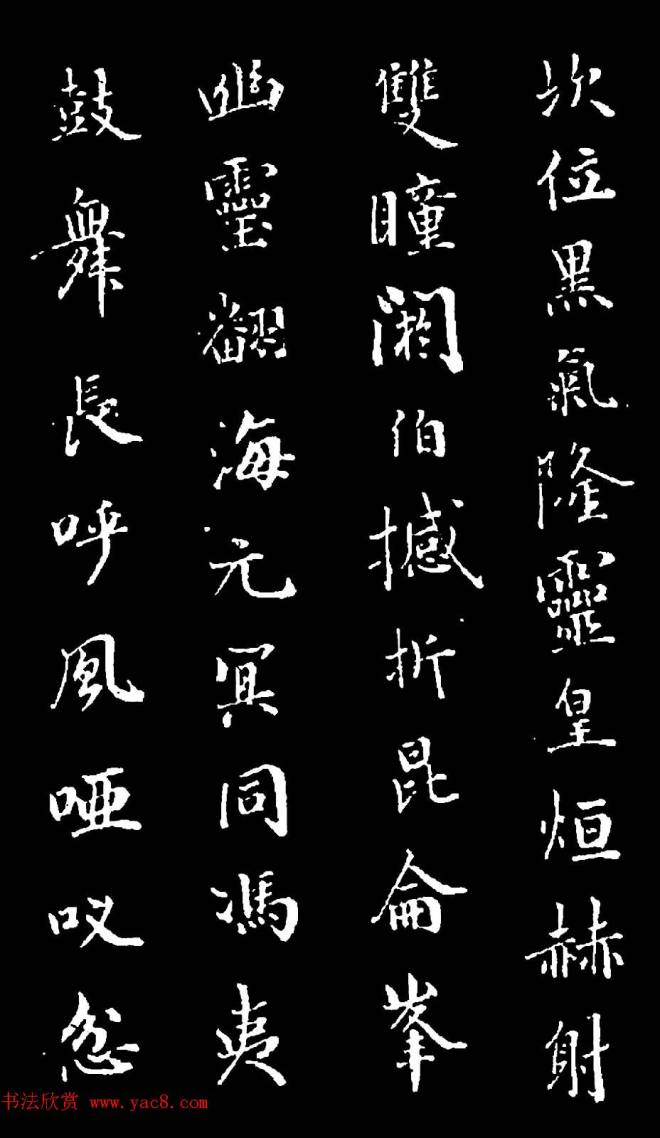 坎位黑氣隆靈皇烜赫射
雙瞳閼伯撼折昆侖峯
幽靈翻海元冥同馮夷
鼓舞長呼風啞㕥忽
书法欣赏 www.yac8.com